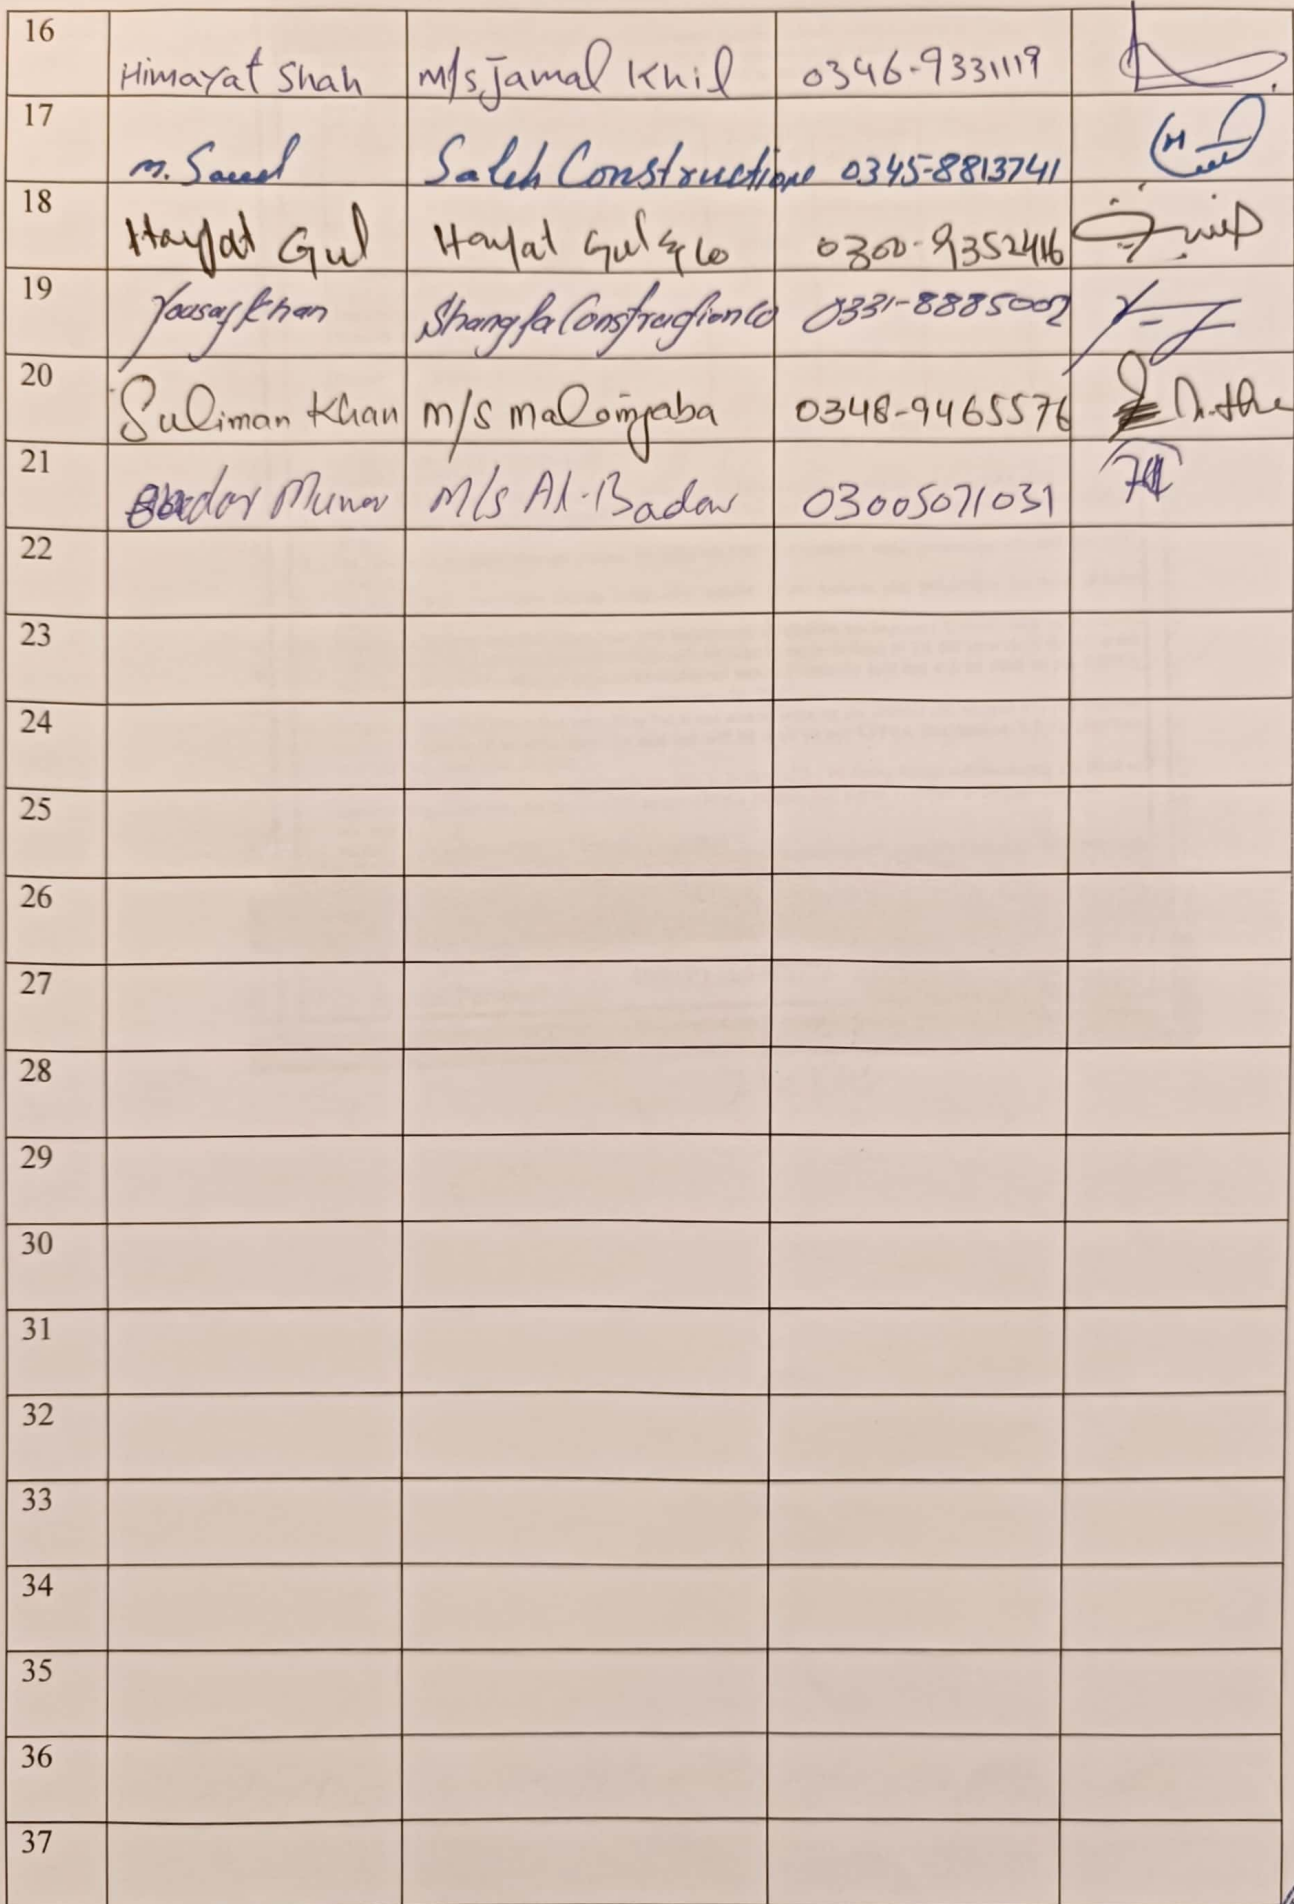 16 Himayat Shah M/s Jamal Khil 0346-9331119
17 M. Saeed Saleh Constructions 0345-8813741
18 Hayat Gul Hayat Gul & Co 0300-9352416
19 Yousaf Khan Shangla Construction Co 0331-8885002
20 Suliman Khan M/S Malamjaba 0348-9465576
21 Badar Munar M/s Al-Badar 03005071031
22
23
24
25
26
27
28
29
30
31
32
33
34
35
36
37